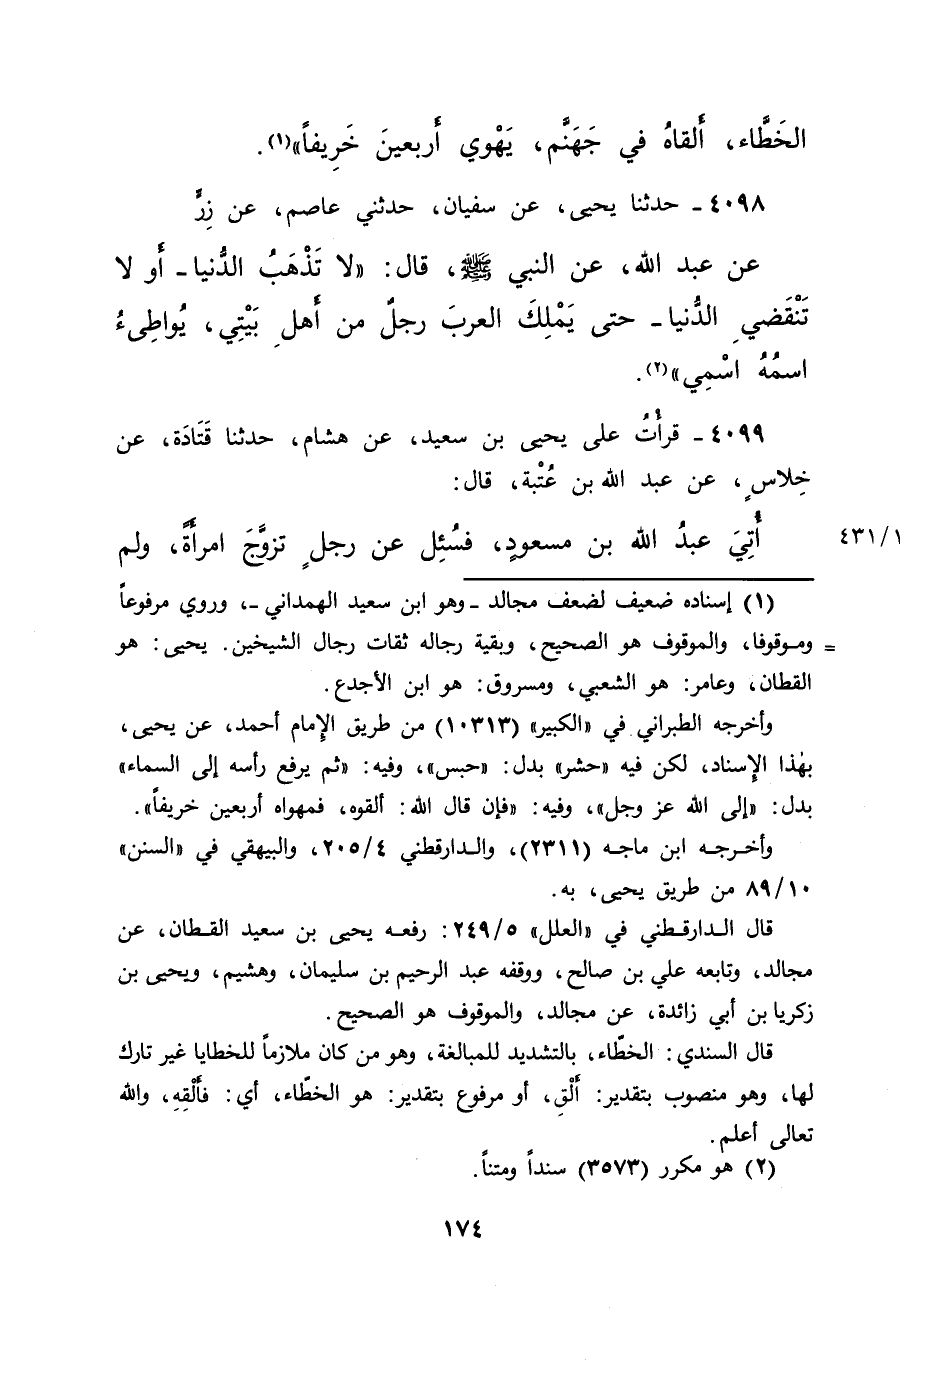 الخَطَّاء، أَلقاهُ في جَهَنَّم، يَهْوي أَربعينَ خَرِيفاً»(١).
٤٠٩٨ـ حدثنا يحيى، عن سفيان، حدثني عاصم، عن زِرٍّ
عن عبد الله، عن النبي ﷺ، قال: «لا تَذْهَبُ الدُّنيا ـ أَو لا
تَنْقَضي الدُّنيا ـ حتى يَمْلِكَ العربَ رجلٌ من أَهلِ بَيْتِي، يُواطِىءُ
اسمُهُ اسْمِي»(٢).
٤٠٩٩ـ قرأْتُ على يحيى بن سعيد، عن هشام، حدثنا قَتَادَة، عن
خِلاسٍ، عن عبد الله بن عُتْبة، قال:
أُتِيَ عبدُ الله بن مسعودٍ، فسُئِل عن رجلٍ تزوَّجَ امرأَةً، ولم
٤٣١/١
(١) إسناده ضعيف لضعف مجالد ـ وهو ابن سعيد الهمداني ـ، وروي مرفوعاً
وموقوفا، والموقوف هو الصحيح، وبقية رجاله ثقات رجال الشيخين. يحيى: هو =
القطان، وعامر: هو الشعبي، ومسروق: هو ابن الأجدع.
وأخرجه الطبراني في «الكبير» (١٠٣١٣) من طريق الإمام أحمد، عن يحيى،
بهٰذا الإسناد، لكن فيه «حشر» بدل: «حبس»، وفيه: «ثم يرفع رأسه إلى السماء»
بدل: «إلى الله عز وجل»، وفيه: «فإن قال الله: ألقوه، فمهواه أربعين خريفاً».
وأخرجه ابن ماجه (٢٣١١)، والدارقطني ٢٠٥/٤، والبيهقي في «السنن»
٨٩/١٠ من طريق يحيى، به.
قال الدارقطني في «العلل» ٢٤٩/٥: رفعه يحيى بن سعيد القطان، عن
مجالد، وتابعه علي بن صالح، ووقفه عبد الرحيم بن سليمان، وهشيم، ويحيى بن
زكريا بن أبي زائدة، عن مجالد، والموقوف هو الصحيح.
قال السندي: الخطّاء، بالتشديد للمبالغة، وهو من كان ملازماً للخطايا غير تارك
لها، وهو منصوب بتقدير: أَلْقِ، أو مرفوع بتقدير: هو الخطّاء، أي: فأَلْقِهِ، والله
تعالى أعلم.
(٢) هو مكرر (٣٥٧٣) سنداً ومتناً.
١٧٤